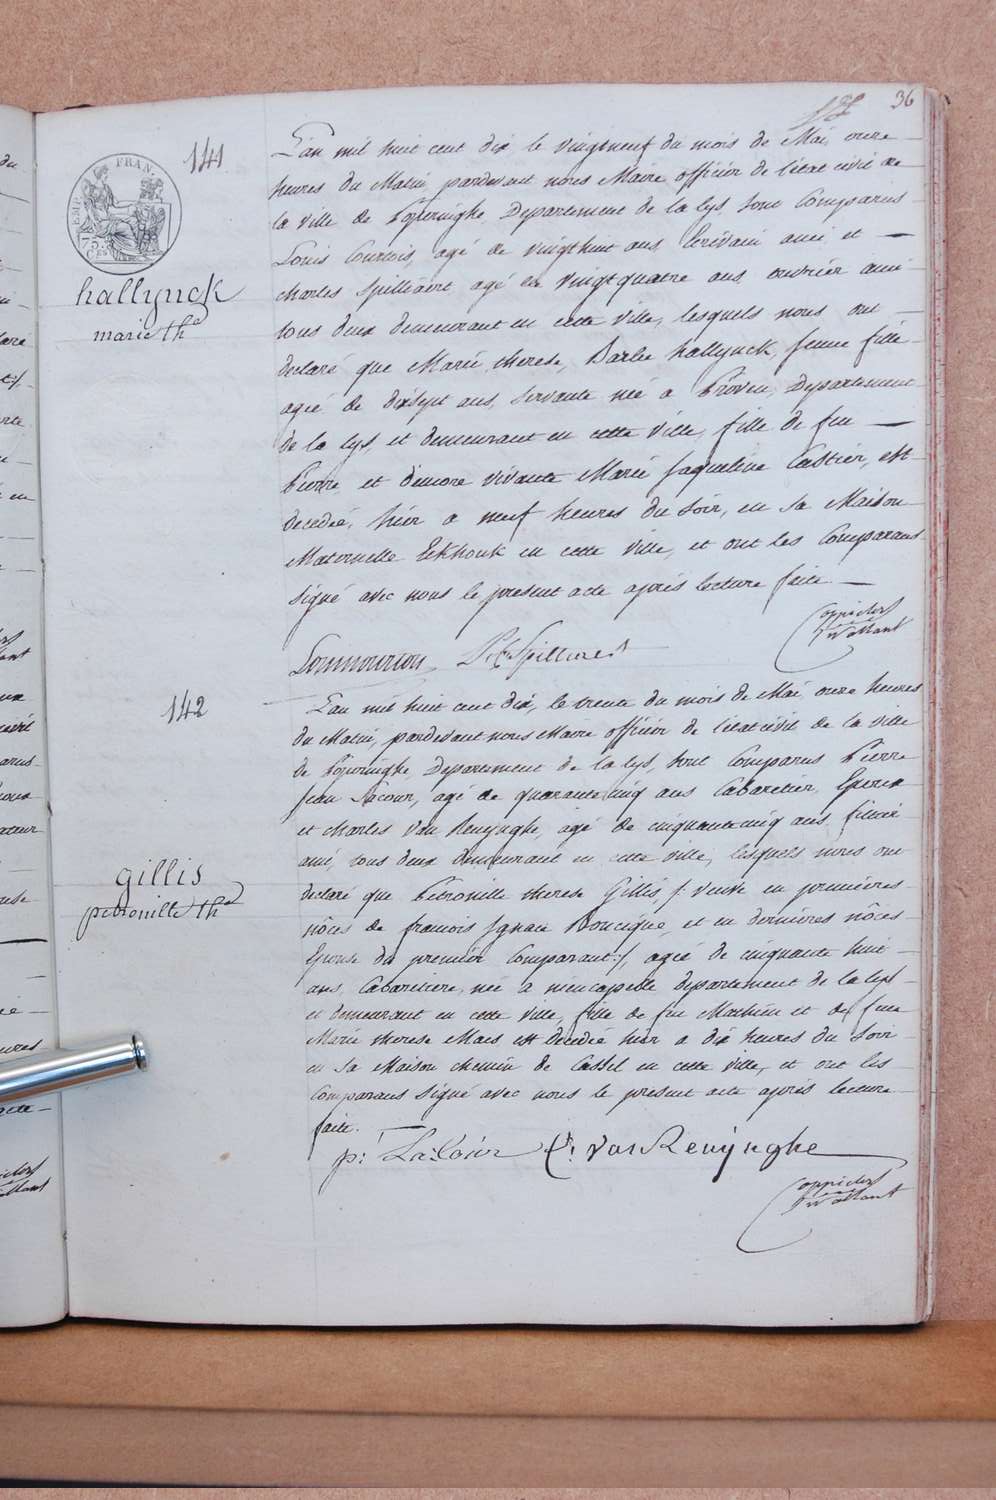 36
141
EMP. FRAN.
75 CES
hallynck
marie tha
L'an mil huit cent dix le vingtneuf du mois de Mai, onze
heures du Matin, pardevant nous Maire officier de l'état civil de
la ville de Poperinghe, Departement de la lys, sont Comparus
Louis Courtois, agé de vingthuit ans, Ecrivain ami et
Charles Spillieaert agé de vingtquatre ans ouvrier ami
tous deux demeurant en cette ville, lesquels nous ont
declaré que Marie, therese, Barbe hallynck, jeune fille
agée de dixsept ans, servante née a Proven, Departement
de la lys, et demeurant en cette ville, fille de feu
Pierre, et d'encore vivante Marie Jaqueline Castier, est
decedée, hier a neuf heures du soir, en sa Maison
Maternelle Eekhouk en cette ville, et ont les Comparans
signé avec nous le present acte après lecture faite
142
gillis
petronille tha
L'an mil huit cent dix, le trente du mois de Mai onze heures
du Matin, pardevant nous Maire officier de l'état civil de la ville
de Poperinghe, Departement de la lys, sont Comparus Pierre
Jean Lacour, agé de quarantecinq ans Cabaretier, Epoux
et Charles Van Renynghe, agé de cinquantecinq ans, filtier
ami, tous deux demeurant en cette ville, lesquels nous ont
declaré que Petronille therese Gillis /: veuve en premières
nôces de francois Ignace Boucique, et en dernières nôces
Epouse du premier Comparant :/, agée de cinquante huit
ans, Cabaretiere, née a neucapelle departement de la lys
et demeurant en cette ville, fille de feu Mathieu et de feue
Marie therese Maes est decedée hier a dix heures du soir
en sa Maison chemin de Cassel en cette ville, et ont les
Comparans signé avec nous le present acte après lecture
faite.
p: LaCour C: van Renynghe